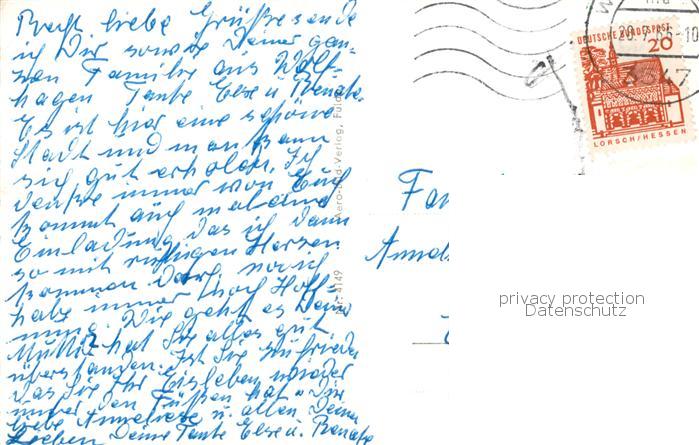 Recht liebe Grüße sende
ich Dir sowie Deiner gan-
zen Familie aus Wolf-
hagen Tante Else u. Renate.
Es ist hier eine schöne
Stadt und man kann
sich gut erholen. Ich
denke immer von Euch
kommt auch mal eine
Einladung das ich dann
so mit ruhigen Herzen
kommen darf, wo ich
habe immer noch Hoff-
nung. Wie geht es Deine
Mutti? hat Sie alles gut
überstanden. Ist Sie zufrieden
das Sie Ihr Eisleben wieder
unter den Füßen hat. Dir
liebe Anneliese u. allen Deinen
Lieben Deine Tante Else u. Renate
Aero-Bild-Verlag, Fulda
Nr. 4149
DEUTSCHE BUNDESPOST
20
LORSCH/HESSEN
3547
Fam
Annel
privacy protection
Datenschutz